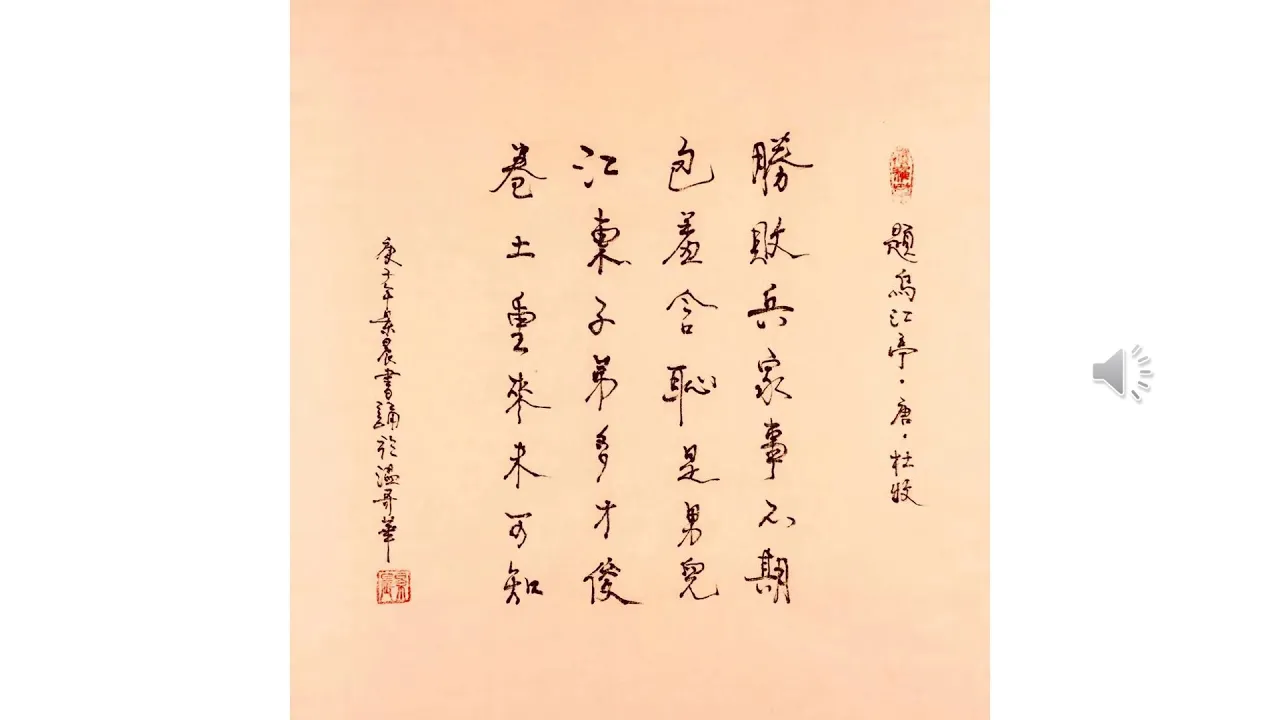 題烏江亭·唐·杜牧
勝敗兵家事不期
包羞含恥是男兒
江東子弟多才俊
卷土重來未可知
庚子年景晨書誦於溫哥華